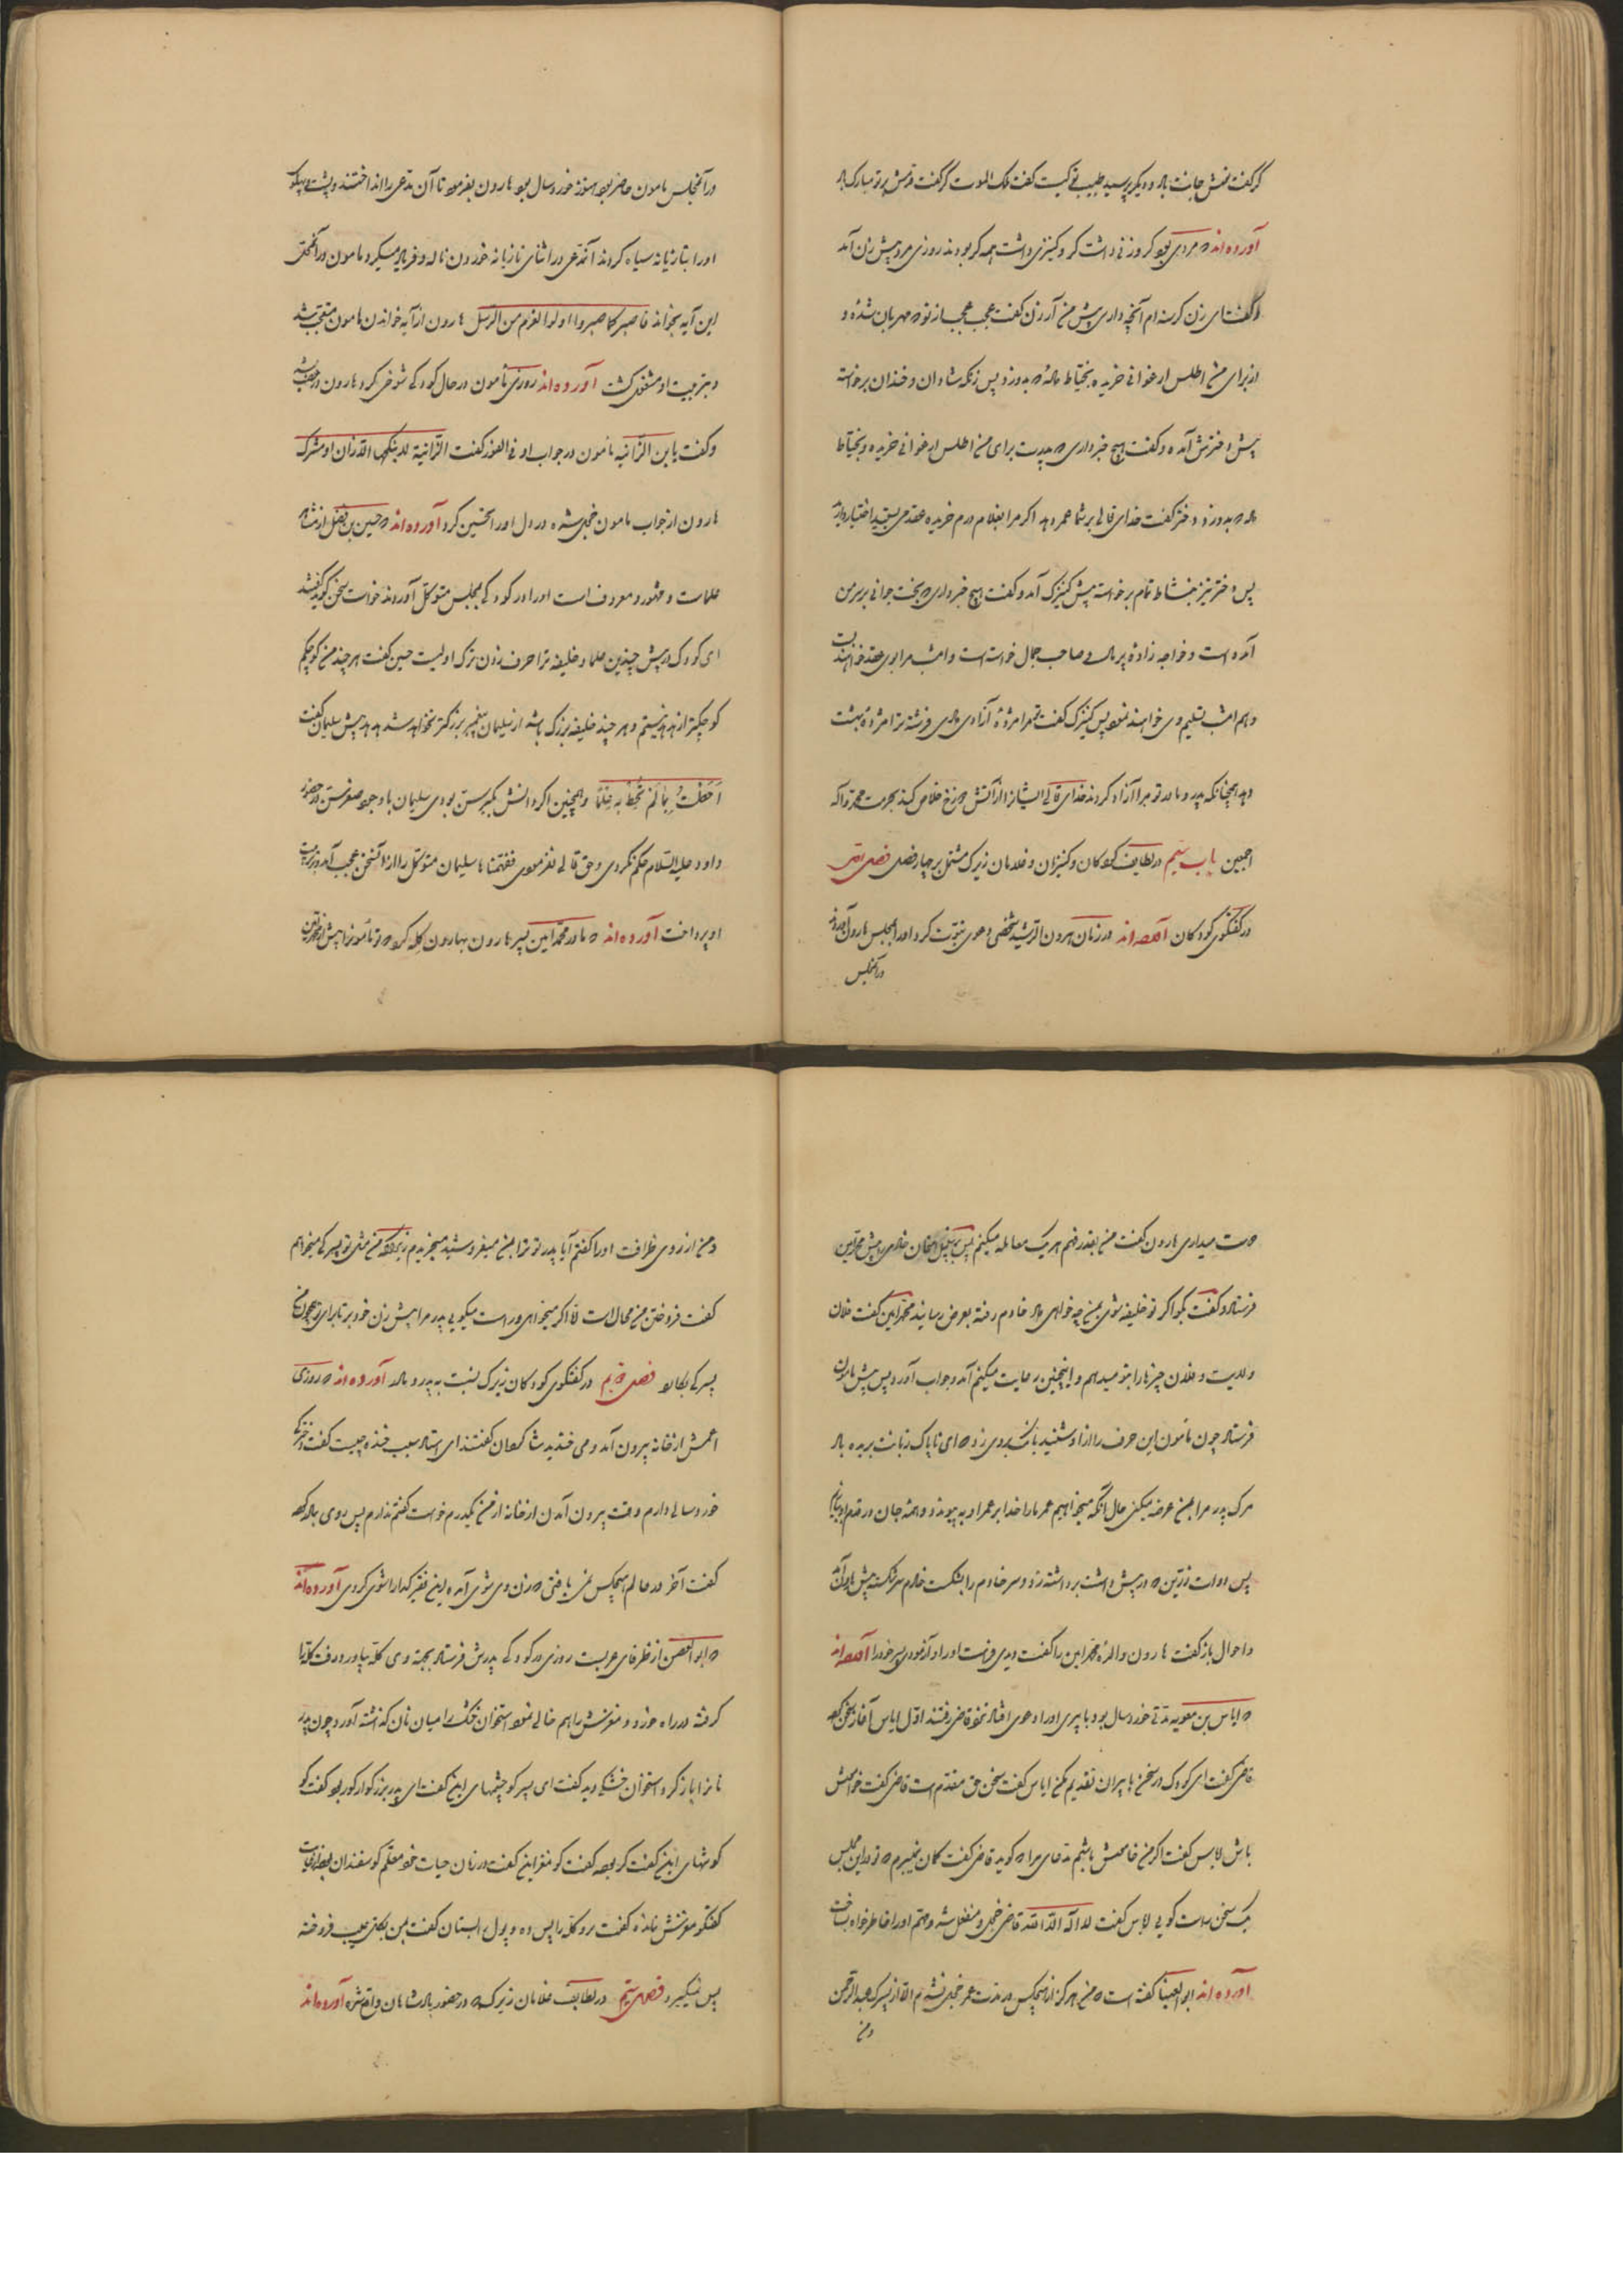 کر گفت نوش جانت باد و دیگر پرسید طبیب تو کیست گفت ملک الموت کر گفت قدمش بر تو مبارک باد
آورده‌اند که مردی بود کر و زنی داشت کر و کنیزی داشت همه کر بودند روزی مرد پیش زن آمد
و گفت ای زن گرسنه‌ام آنچه داری پیش من آر زن گفت عجب عجب از تو که مهربان شده و
از برای من اطلس ارغوانی خریده بخیاط داده که بدوزد پس زنکه شادان و خندان برخواسته
پیش دخترش آمده و گفت هیچ خبر داری که پدرت برای من اطلس ارغوانی خریده و بخیاط
داده که بدوزد دختر گفت خدای تعالی بر شما عمر دهد اگر مرا بغلام درم خریده عقد می‌بندید اختیار دارید
پس دختر نیز بنشاط تمام برخواسته پیش کنیزک آمد و گفت هیچ خبر داری که بخت جوانی بر سر من
آمده است و خواجه زاده پر مال و صاحب جمال خواسته است و امشب مرا بوی عقد خواهند بست
و هم امشب تسلیم وی خواهند نمود پس کنیزک گفت تو مرا مژدهٔ آزادی دادی فرشته ترا مژدهٔ بهشت
دهد همچنانکه پدر و مادر تو مرا آزاد کردند خدای تعالی ایشانرا از آتش دوزخ خلاص کند بحرمت محمد و آله
اجمعین باب سیم در لطایف کودکان و کنیزان و غلامان زیرک مشتمل بر چهار فصل فصل اول
در گفتگوی کودکان آورده‌اند در زمان هرون الرشید شخصی دعوی نبوت کرد اورا بمجلس هارون آوردند
در آنمجلس
در آنمجلس مامون حاضر بود هنوز خورد سال بود هارون بفرمود تا آن مدعی را انداختند و پشت و پهلوی
اورا بتازیانه سیاه کردند آنمدعی در اثنای تازیانه خوردن ناله و فریاد میکرد مامون در آنحال
این آیه بخواند فاصبر کما صبر اولوا العزم من الرسل هارون از آیه خواندن مامون متعجب شد
و بتربیت او مشغول گشت آورده‌اند روزی مامون در حال کودکی شوخی کرد هارون در غضب شد
و گفت یا بن الزانیه مامون در جواب او فی الفور گفت الزانیة لا ینکحها الا زان او مشرک
هارون از جواب مامون خجل شده در دل اورا تحسین کرد آورده‌اند که حسین بن فضل از مشاهیر
علماست و مشهور و معروف است اورا در کودکی بمجلس متوکل آوردند خواست سخن گوید گفتند
ای کودک در پیش چندین علما و خلیفه ترا حرف زدن ترک اولیست حسین گفت هر چند من کوچکم
کوچکتر از هدهد نیستم و هر چند خلیفه بزرگ باشد از سلیمان پیغمبر بزرگتر نخواهد شد هدهد پیش سلیمان گفت
احطت بما لم تحط به علما و همچنین اگر دانش بکبر سن بودی سلیمان با وجود صغر سن در حضور
داود علیه السلام حکم نکردی و حق تعالی نفرمودی ففهمناها سلیمان متوکل را از آنسخن عجب آمد و بتربیت
او پرداخت آورده‌اند که مادر محمد امین پسر هارون بهارون گله کرد که تو مامونرا بیش از محمد امین
دوست میداری هارون گفت من بقدر فهم هر یک معامله میکنم پس بر سبیل امتحان خادمی را پیش محمد امین
فرستاد و گفت بگو اگر تو خلیفه شوی بمن چه خواهی داد خادم رفته بعرض رسانید محمد امین گفت فلان
ولایت و فلان چیز را بتو میدهم و اینچنین رعایت میکنم آمد و جواب آورد پس پیش مامون
فرستاد چون مامون این حرف را از او شنید بانگ بر وی زد که ای ناپاک زبانت بریده باد
مرگ پدر مرا بمن عرضه میکنی حال آنکه میخواهیم عمر ما را خدا بر عمر او به پیوندد و همه جان در قدم او بازیم
پس دوات زرین که در پیش داشت برداشته زد و سر خادم را بشکست خادم سر شکسته پیش هارون آمد
و احوال باز گفت هارون والدهٔ محمد امین را گفت دیدی فراست اورا و آزمودی پسر خود را آورده‌اند
که ایاس بن معویه مدتی خورد سال بود با پیری اورا دعوی افتاد نزد قاضی رفتند اول ایاس آغاز سخن کرد
قاضی گفت ای کودک در سخن با پیران تقدیم مکن ایاس گفت سخن حق مقدم است قاضی گفت خاموش
باش ایاس گفت اگر من خاموش باشم مدعای مرا که گوید قاضی گفت گمان نمیبرم که تو در این مجلس
یک سخن راست گویی ایاس گفت لا اله الا الله قاضی خجل و منفعل شد و مهم اورا خاطر خواه ساخت
آورده‌اند ابو العینا گفته است که من هرگز از هیچکس در مدت عمر خجل نشدم الا از پسرک عبدالرحمن
و من
و من از روی ظرافت اورا گفتم آیا پدر تو ترا بمن میفروشد که میخریدم زیرا که من مثل تو پسرکی میخواهم
گفت فروختن من محال است اما اگر میخواهی و راست میگویی پدر مرا پیش زن خود بر تا برای تو چون من
پسرکی بکارد فصل دویم در گفتگوی کودکان زیرک نسبت به پدر و مادر آورده‌اند که روزی
اعمش از خانه بیرون آمد و می خندید شاگردان گفتند ای استاد سبب خنده چیست گفت دخترکی
خورد سال دارم وقت بیرون آمدن از خانه از من یکدرم خواست گفتم ندارم پس روی بمادر کرد
گفت آخر در عالم هیچکس نمی یافتی که زن وی شوی آمده این فقیر گدا را شوی کردی آورده‌اند
که ابو الحصین از ظرفای عربست روزی در کودکی پدرش فرستاد بجهة وی کله بیاورد رفت کله را
گرفته در راه خورد و مغزش را هم خالی نمود استخوان خشک را میان نان گذاشته آورد چون پدر
نانرا باز کرد استخوان خشک دید گفت ای پسر کو چشمهای این گفت ای پدر بزرگوار کور بود گفت کو
گوشهای این گفت کر بود گفت کو مغز این گفت در زمان حیات خود معلم گوسفندان بود از
گفتگو مغزش نمانده گفت برو کله را پس ده و پول را بستان گفت بمن بکل عیب فروخته
پس نمیگیرد فصل سیم در لطایف غلامان زیرک که در حضور پادشاهان واقع شده آورده‌اند